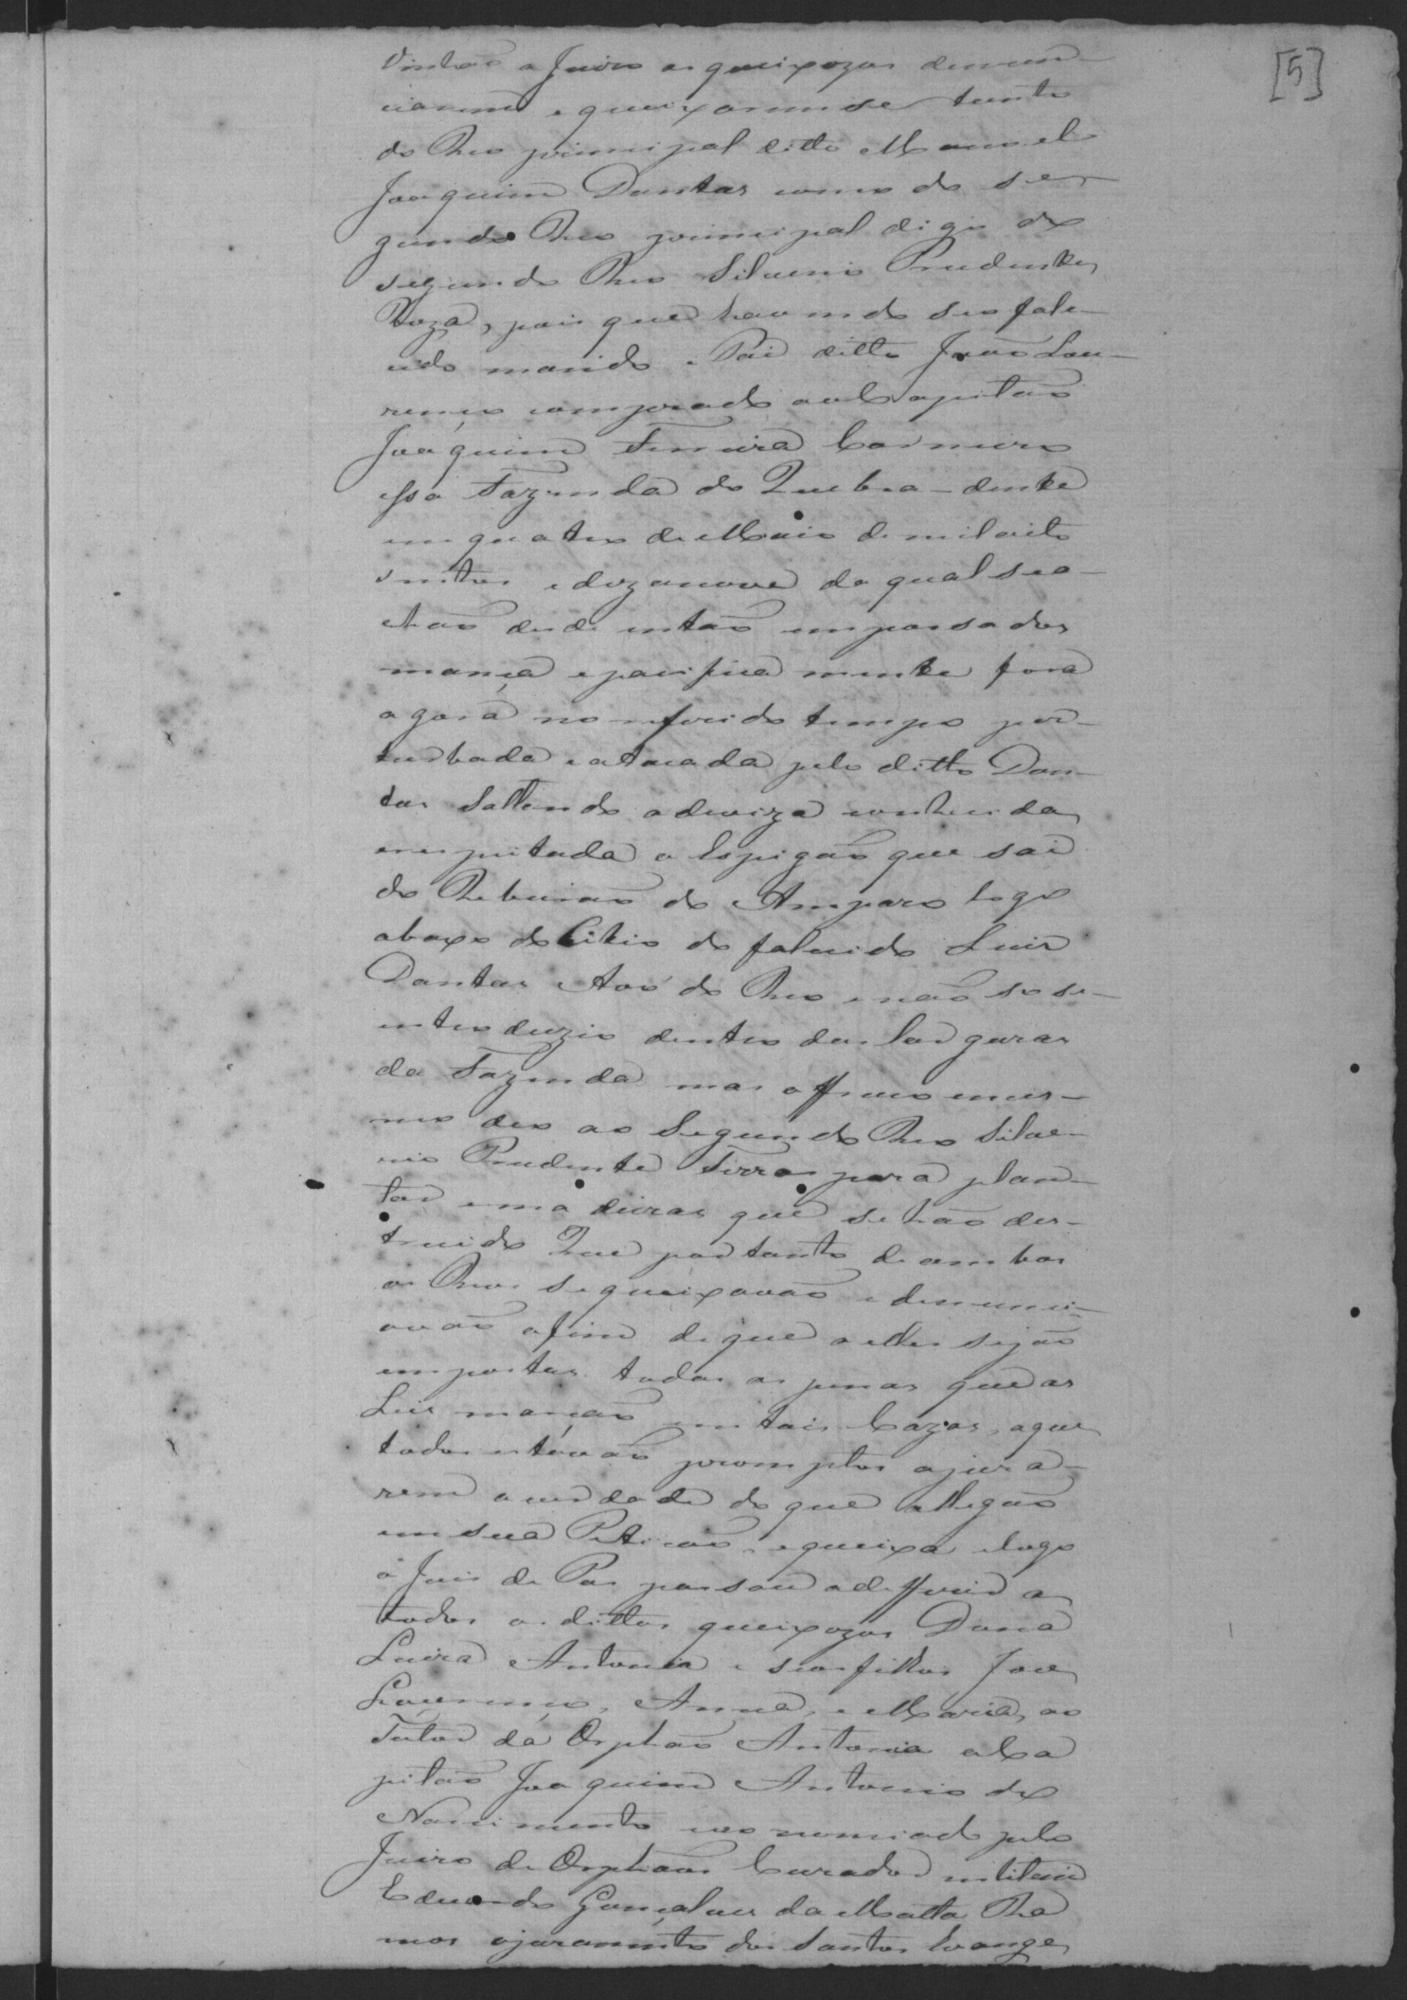 [5]
Vinhão a Juizo as queixozas denun-
ciarem e queixaremse tanto
do Reo principal ditto Manoel
Joaquim Dantas como do se-
gundo Reo principal digo do
segundo Reo Silverio Prudente
Roza, pois que havendo seo fale-
cido marido e Pai ditto João Lou-
renço comprado ao Capitão
Joaquim Ferreira Carneiro
essa Fazenda do Quebra-dente
em quatro de Maio de mil oito
centos e dezanove da qual se a-
chão desde então empossados
mança e pacifica mente fora
agora no referido tempo per-
turbada e atacada pelo ditto Dan-
tas saltando a deviza conhecida
e respeitada o Espigão que sai
do Rebeirão do Amparo logo
abaxo do Citio do falecido Luis
Dantas Avô do Reo e não so se
introduzio dentro das larguras
da Fazenda mas athe mes-
mo deo ao Segundo Reo Silve-
rio Prudente Terras para plan-
tar e madeiras que se hão des-
truido Que portanto de ambos
os Reos se queixavão e denunci-
avão afim de que a elles sejão
impostas todas as penas que as
Leis marcão em tais Cazos, a que
todos estávão promptos a jura-
rem a verdade do que allegão
em sua Petição e queixa e logo
o Juis de Pas passou a defferir a
todos os dittos queixozos Dona
Luiza Antonia e seos filhos Joze
Lourenço, Anna, e Maria, ao
Tutor da Orphão Antonia o Ca
pitão Joaquim Antonio do
Nascimento e ao nomiado pelo
Juizo de Orphãos Curador in litem
Eduardo Gonçalves da Matta Ra
mos o juramento dos Santos Evange